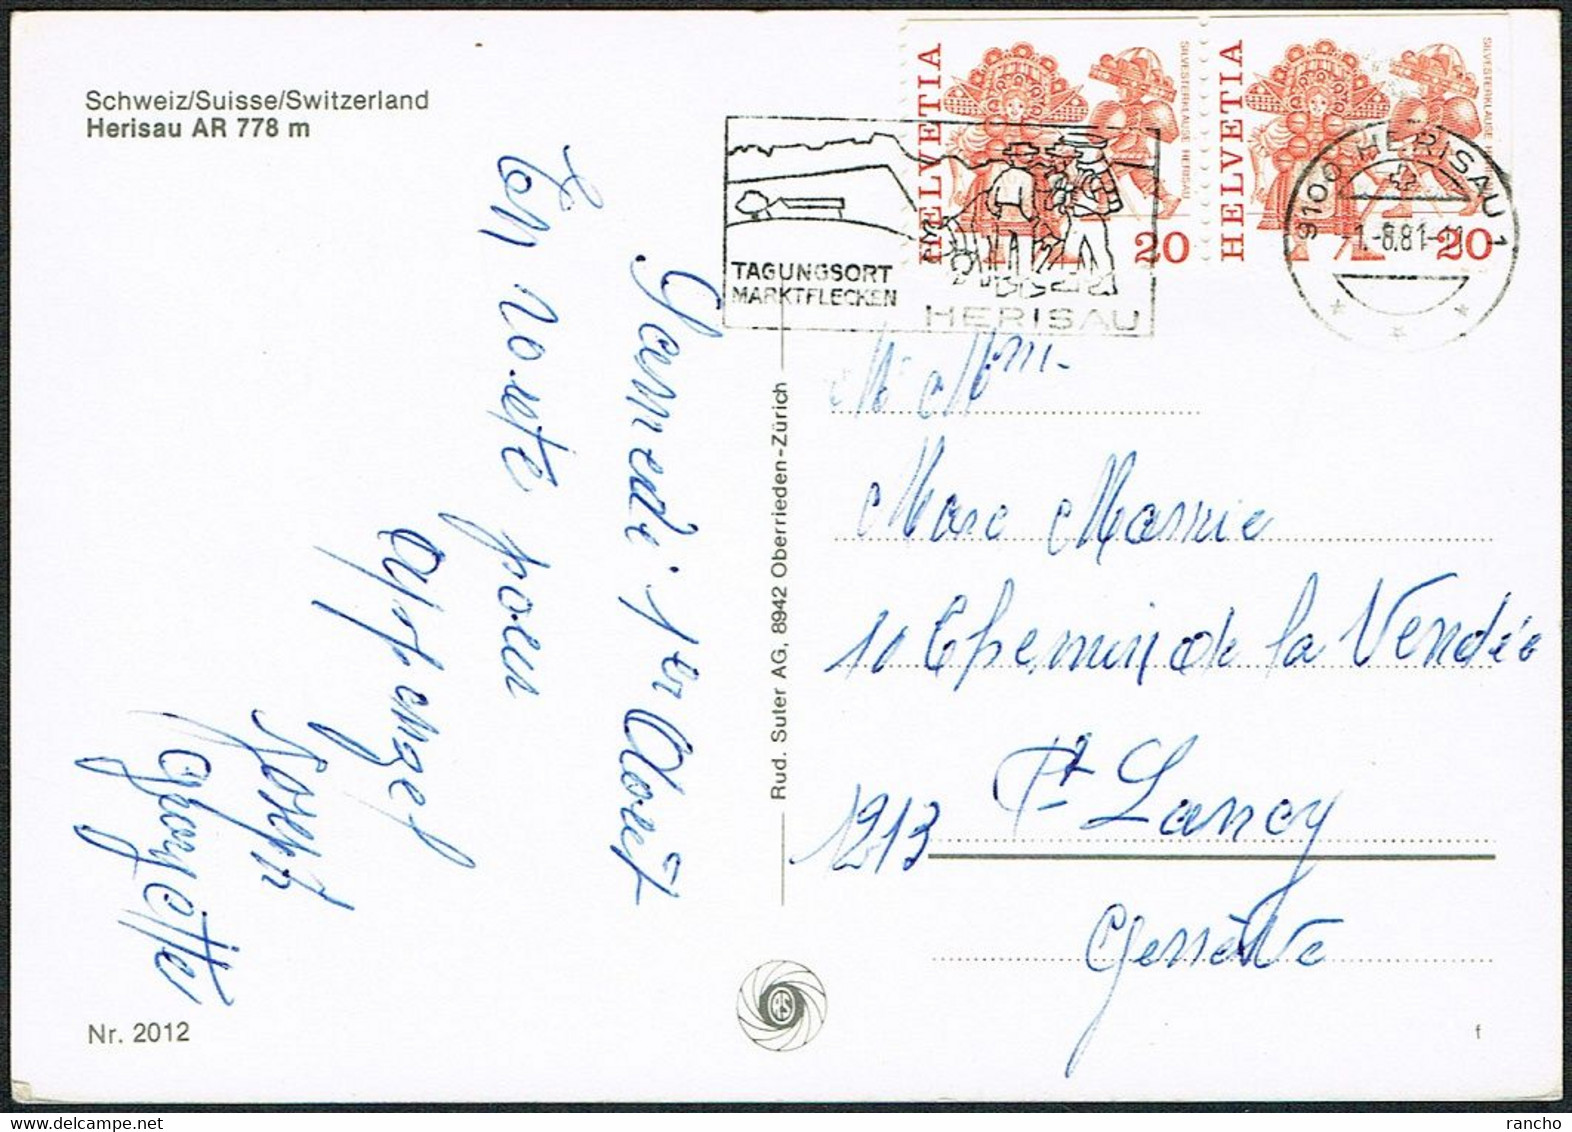 Schweiz/Suisse/Switzerland
Herisau AR 778 m
Samedi 1er Août
En route pour
Appenzel
Joseph
Georgette
Nr. 2012
Rud. Suter AG, 8942 Oberrieden-Zürich
HELVETIA
20
SILVESTERKLÄUSE HERISAU
HELVETIA
20
SILVESTERKLÄUSE
TAGUNGSORT
MARKTFLECKEN
HERISAU
9100 HERISAU 1
1.-8.81-11
M et Mme
Marc
10 Chemin de la Vendée
Pt Lancy
1213
Genève
f
rancho